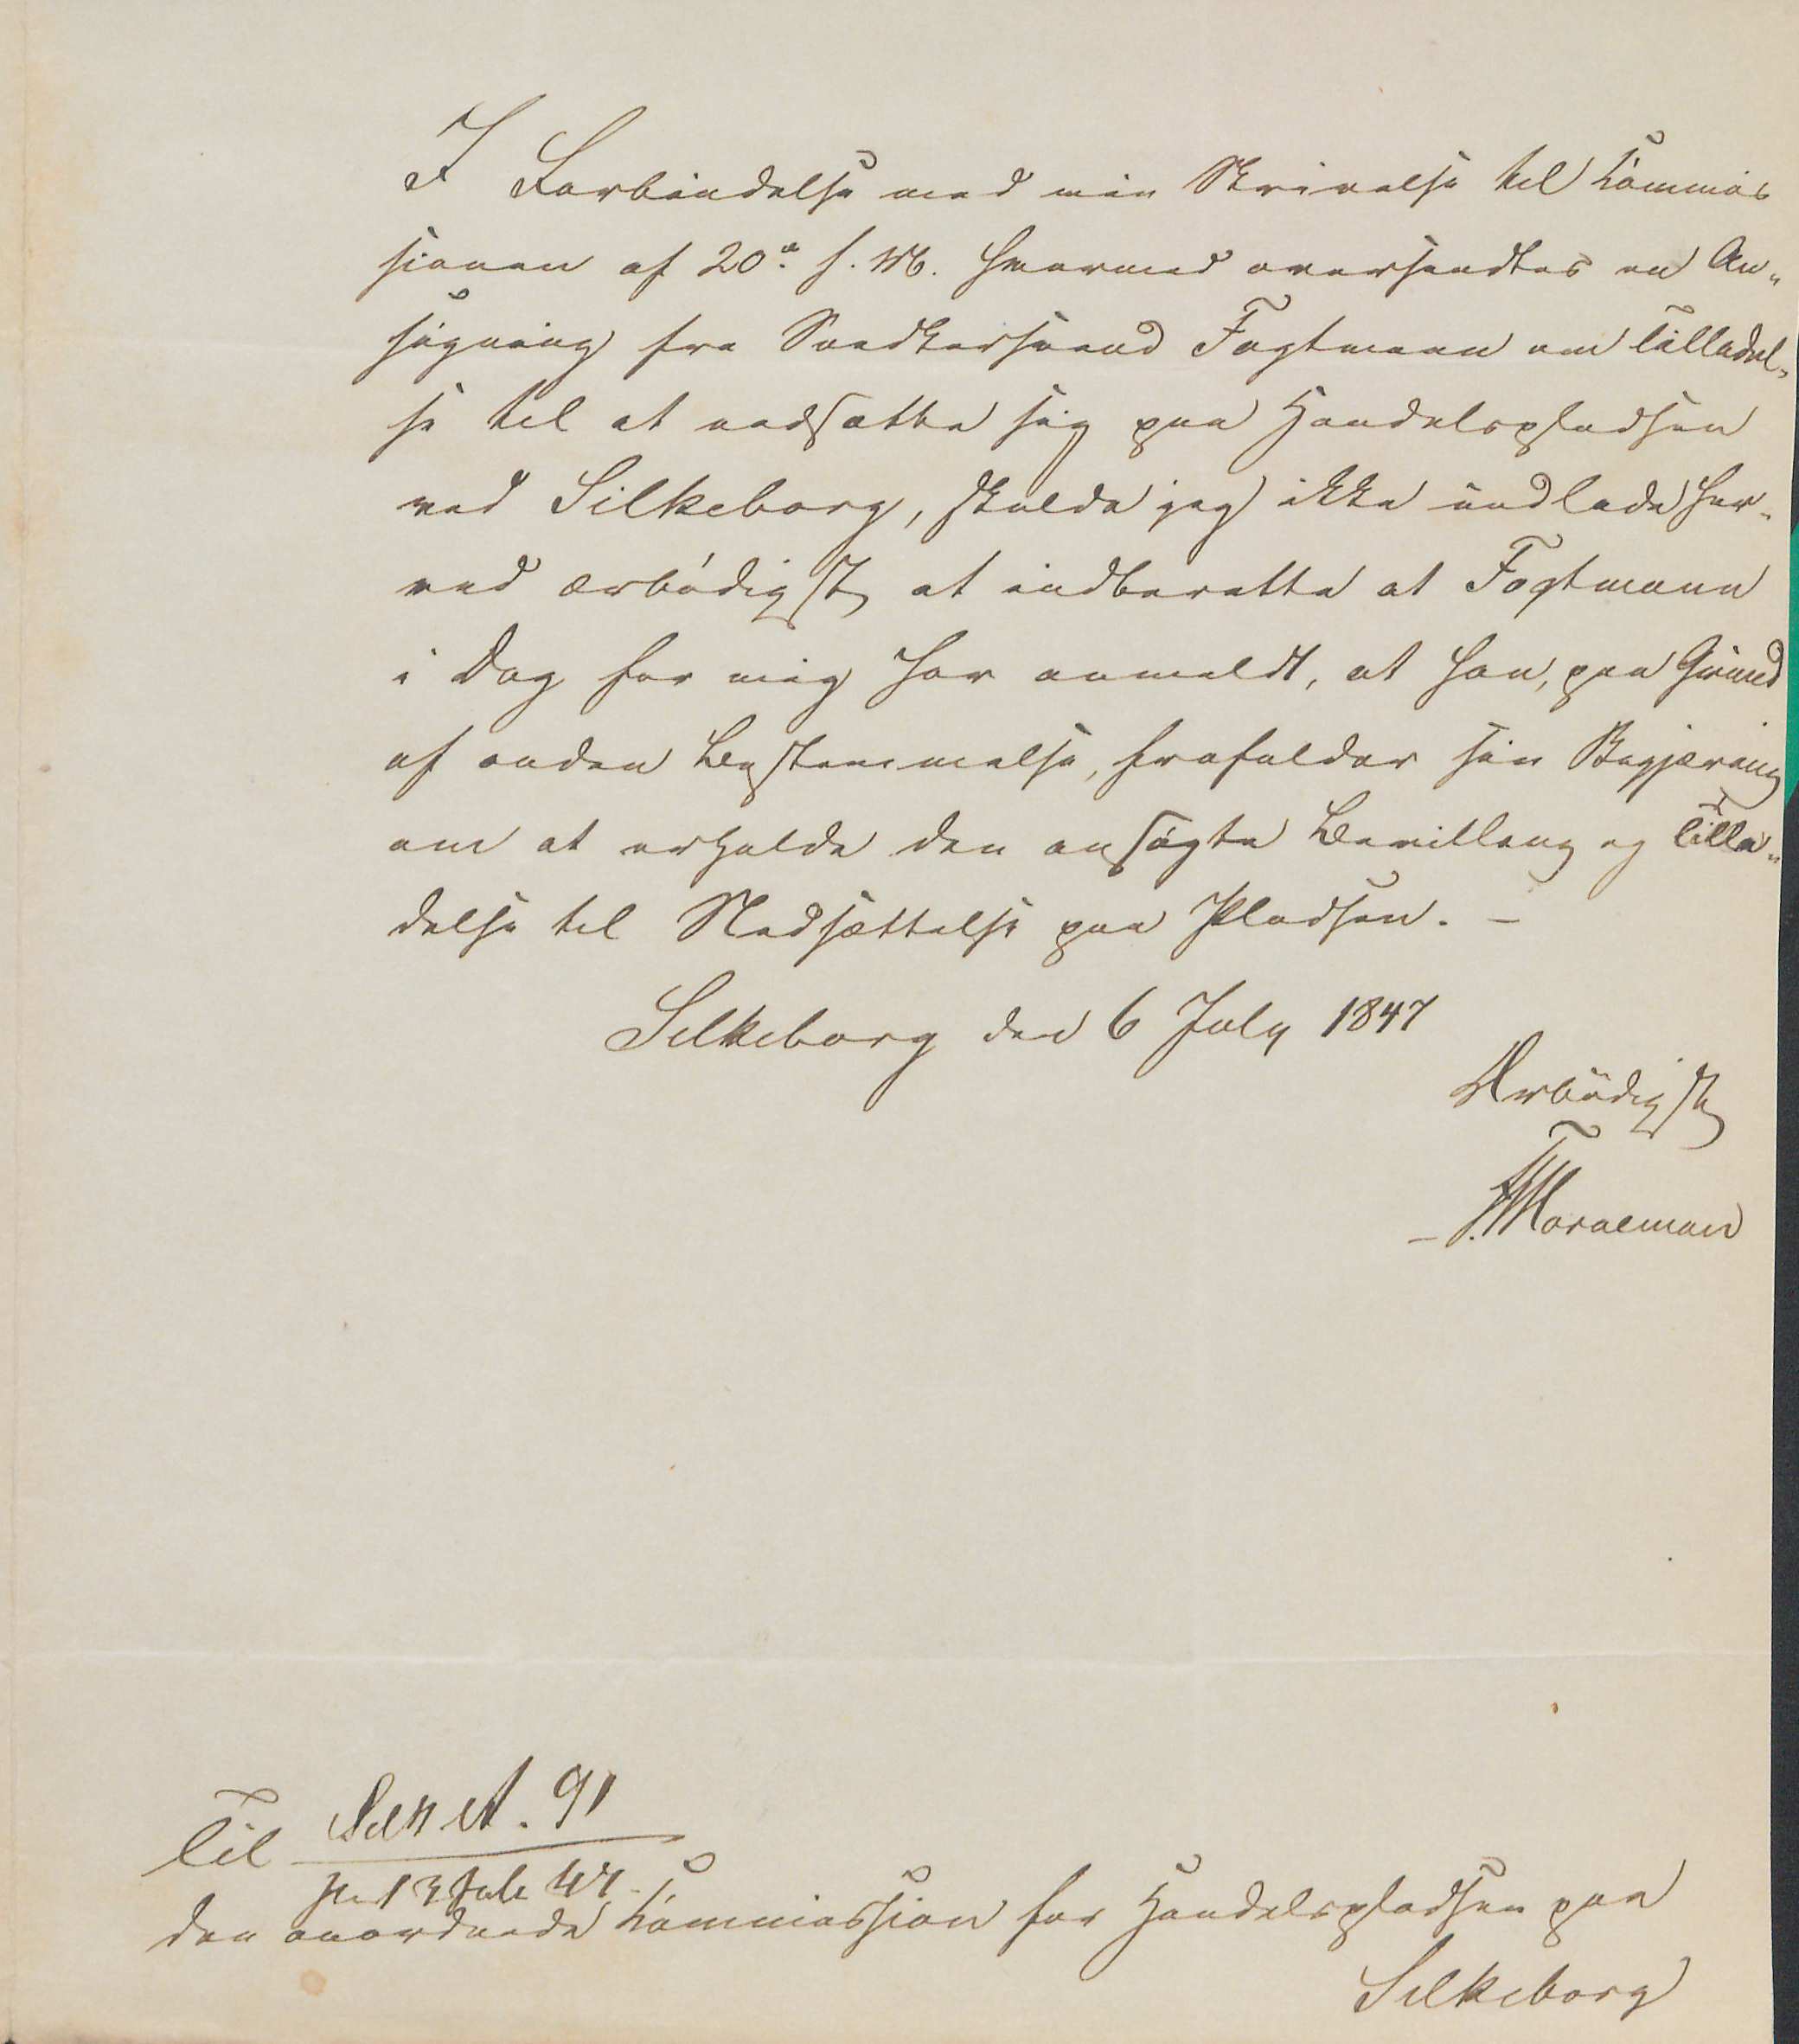 I Forbindelse med min Skrivelse til Kommis
sionen af 20de f. M. hvormed oversendtes en An-
søgning fra Snedkersvend Fogtmann om Tilladel-
se til at nedsætte sig paa Handelspladsen
ved Silkeborg, skulde jeg ikke undlade her-
ved ærbödigst at indberette at Fogtmann
i Dag for mig har anmeldt, at han, paa Grund
af anden Bestemmelse, frafalder sin Begjæring
om at erholde den ansøgte Bevilling og Tilla-
delse til Nedsættelse paa Pladsen. -
Silkeborg den 6 July 1847
Ærbödigst
Til
A. 91
13 Juli 47.
den anordnede Kommission for Handelspladsen paa
Silkeborg